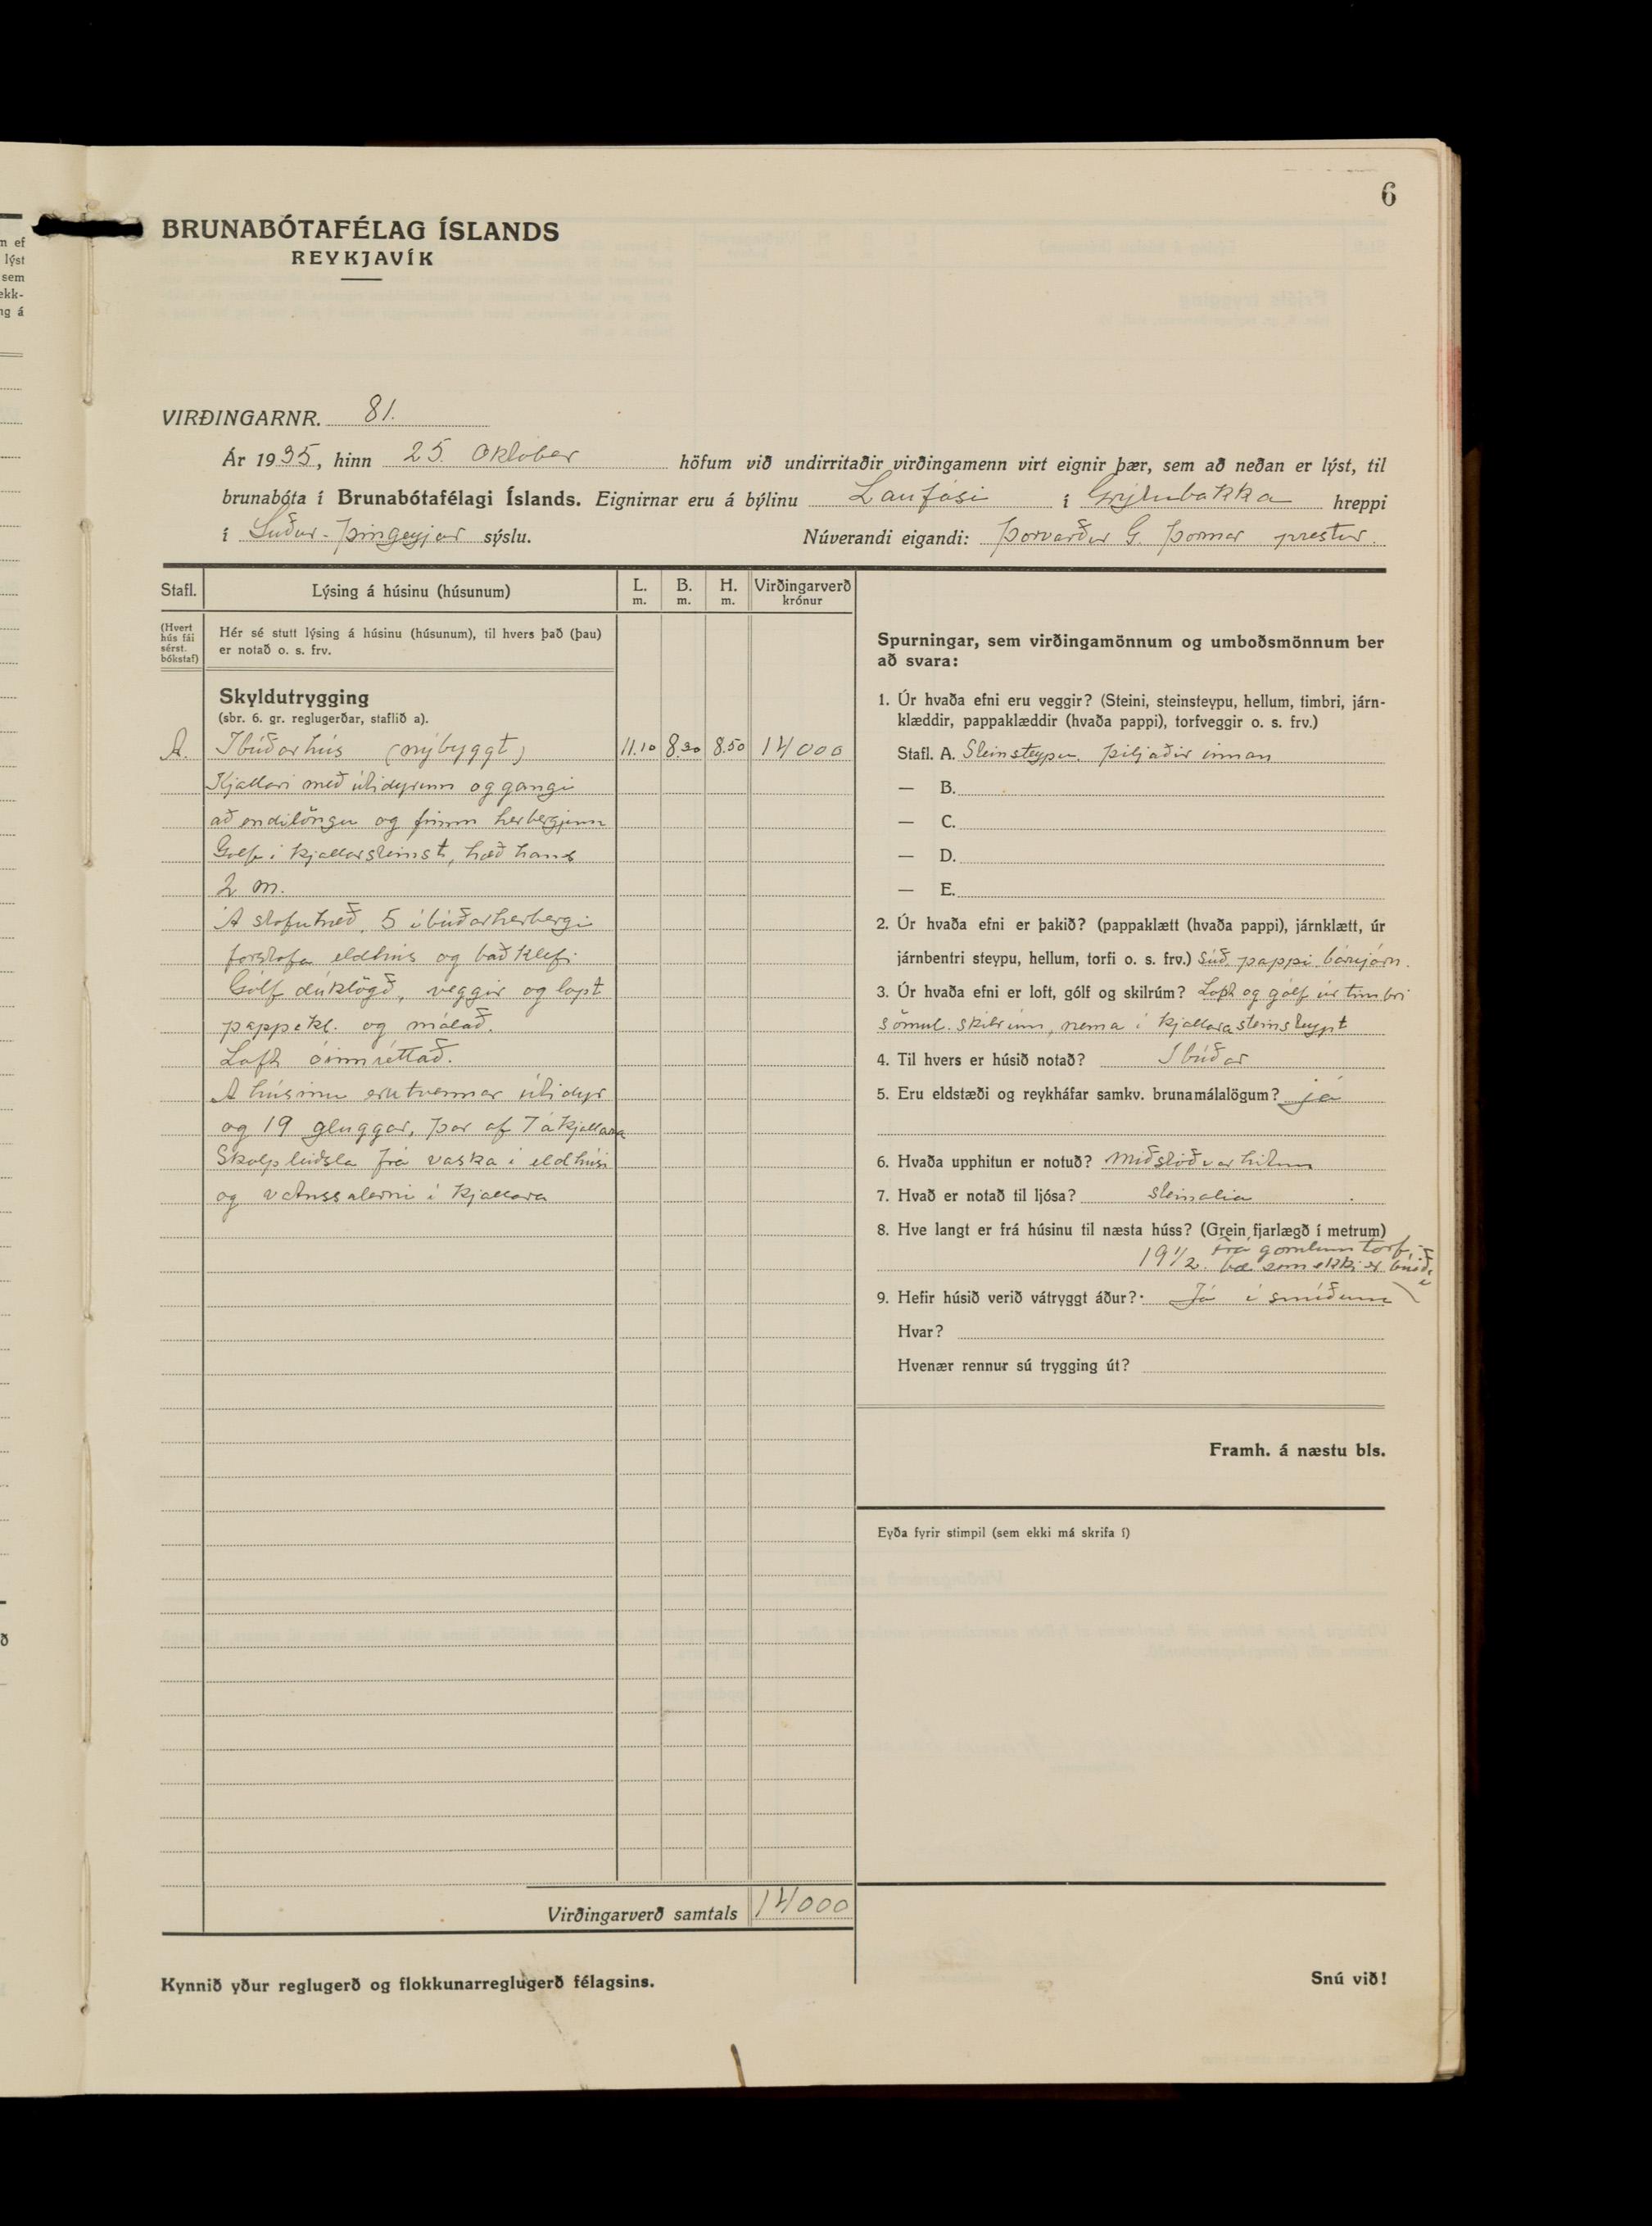 6
BRUNABÓTAFÉLAG ÍSLANDS
REYKJAVÍK
VIRÐINGARNR. 81.
Ár 1935, hinn 25. Október höfum við undirritaðir virðingamenn virt eignir þær, sem að neðan er lýst, til
brunabóta í Brunabótafélagi Íslands. Eignirnar eru á býlinu Laufási í Grýtubakka hreppi
í Suður-Þingeyjar sýslu. Núverandi eigandi: Þorvarður G. Þormar prestur.
Stafl. Lýsing á húsinu (húsunum) L. m. B. m. H. m. Virðingarverð krónur
(Hvert hús fái sérst. bókstaf)
Hér sé stutt lýsing á húsinu (húsunum), til hvers það (þau)
er notað o. s. frv.
Skyldutrygging
(sbr. 6. gr. reglugerðar, staflið a).
A. Íbúðarhús (nýbyggt) 11.10 8.20 8.50 14000
Kjallari með útidyrum og gangi
að endilöngu og fimm herbergjum
Gólf í kjallar steinst, hæð hans
2 m.
Á stofuhæð, 5 íbúðarherbergi
forstofa eldhús og baðklefi.
Gólf dúklögð, veggir og lopt
pappakl. og málað.
Loft óinnréttað.
Á húsinu eru tvennar útidyr
og 19 gluggar, þar af 7 á kjallara
Skolpleiðsla frá vaska í eldhúsi
og vatnssalerni í kjallara
Virðingarverð samtals 14000
Kynnið yður reglugerð og flokkunarreglugerð félagsins.
Spurningar, sem virðingamönnum og umboðsmönnum ber
að svara:
1. Úr hvaða efni eru veggir? (Steini, steinsteypu, hellum, timbri, járn-
klæddir, pappaklæddir (hvaða pappi), torfveggir o. s. frv.)
Stafl. A. Steinsteypu þiljaðir innan
— B.
— C.
— D.
— E.
2. Úr hvaða efni er þakið? (pappaklætt (hvaða pappi), járnklætt, úr
járnbentri steypu, hellum, torfi o. s. frv.) Súð, pappi bárujárn.
3. Úr hvaða efni er loft, gólf og skilrúm? Loft og gólf úr timbri
sömul. skilrúm, nema í kjallara steinsteypt
4. Til hvers er húsið notað? Íbúðar
5. Eru eldstæði og reykháfar samkv. brunamálalögum? já
6. Hvaða upphitun er notuð? Miðstöðvarhitun
7. Hvað er notað til ljósa? steinolia
8. Hve langt er frá húsinu til næsta húss? (Grein fjarlægð í metrum)
19 1/2. frá gömlum torf-
bæ sem ekki er búið í
9. Hefir húsið verið vátryggt áður? Já í smíðum
Hvar?
Hvenær rennur sú trygging út?
Framh. á næstu bls.
Eyða fyrir stimpil (sem ekki má skrifa í)
Snú við!